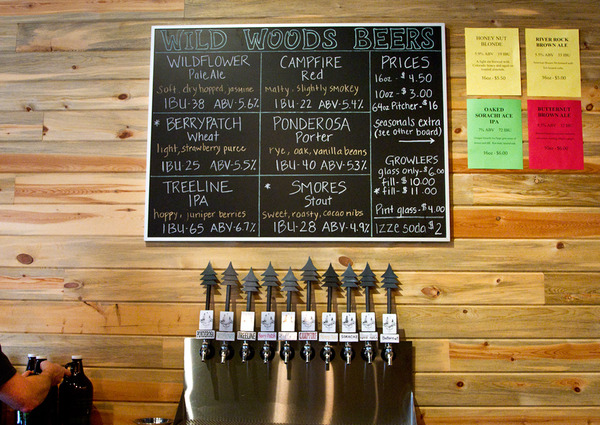 WILD WOODS BEERS
WILDFLOWER
Pale Ale
Soft, dry hopped, jasmine
IBU-38 ABV-5.6%
CAMPFIRE
Red
malty, slightly smokey
IBU-22 ABV-5.4%
* BERRYPATCH
Wheat
light, strawberry puree
IBU-25 ABV-5.5%
PONDEROSA
Porter
rye, oak, vanilla beans
IBU-40 ABV-5.3%
TREELINE
IPA
hoppy, juniper berries
IBU-65 ABV-6.7%
* SMORES
Stout
sweet, roasty, cacao nibs
IBU-28 ABV-4.9%
PRICES
16oz - $4.50
10oz - $3.00
64oz Pitcher - $16
seasonals extra
(see other board)
GROWLERS
glass only - $6.00
fill - $10.00
* fill - $11.00
Pint glass - $4.00
izze soda - $2
HONEY NUT
BLONDE
16oz - $5.50
RIVER ROCK
BROWN ALE
16oz - $5.00
OAKED
SORACHI ACE
IPA
16oz - $6.00
BUTTERNUT
BROWN ALE
TREELINE
CAMPFIRE
SORACHI
Butternut